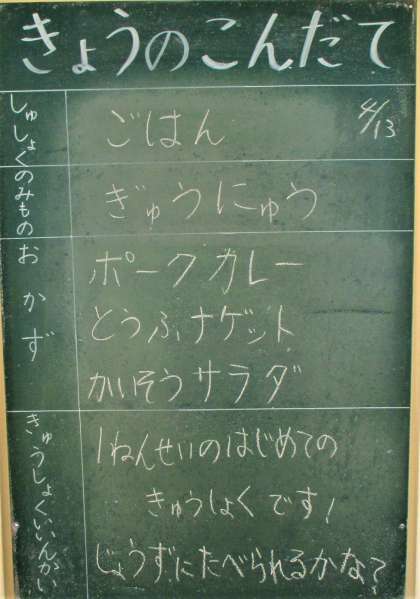 きょうのこんだて
4/13
しゅしょく
ごはん
のみもの
ぎゅうにゅう
おかず
ポークカレー
とうふナゲット
かいそうサラダ
きゅうしょくいいんかい
1ねんせいのはじめての
きゅうしょくです!
じょうずにたべられるかな?